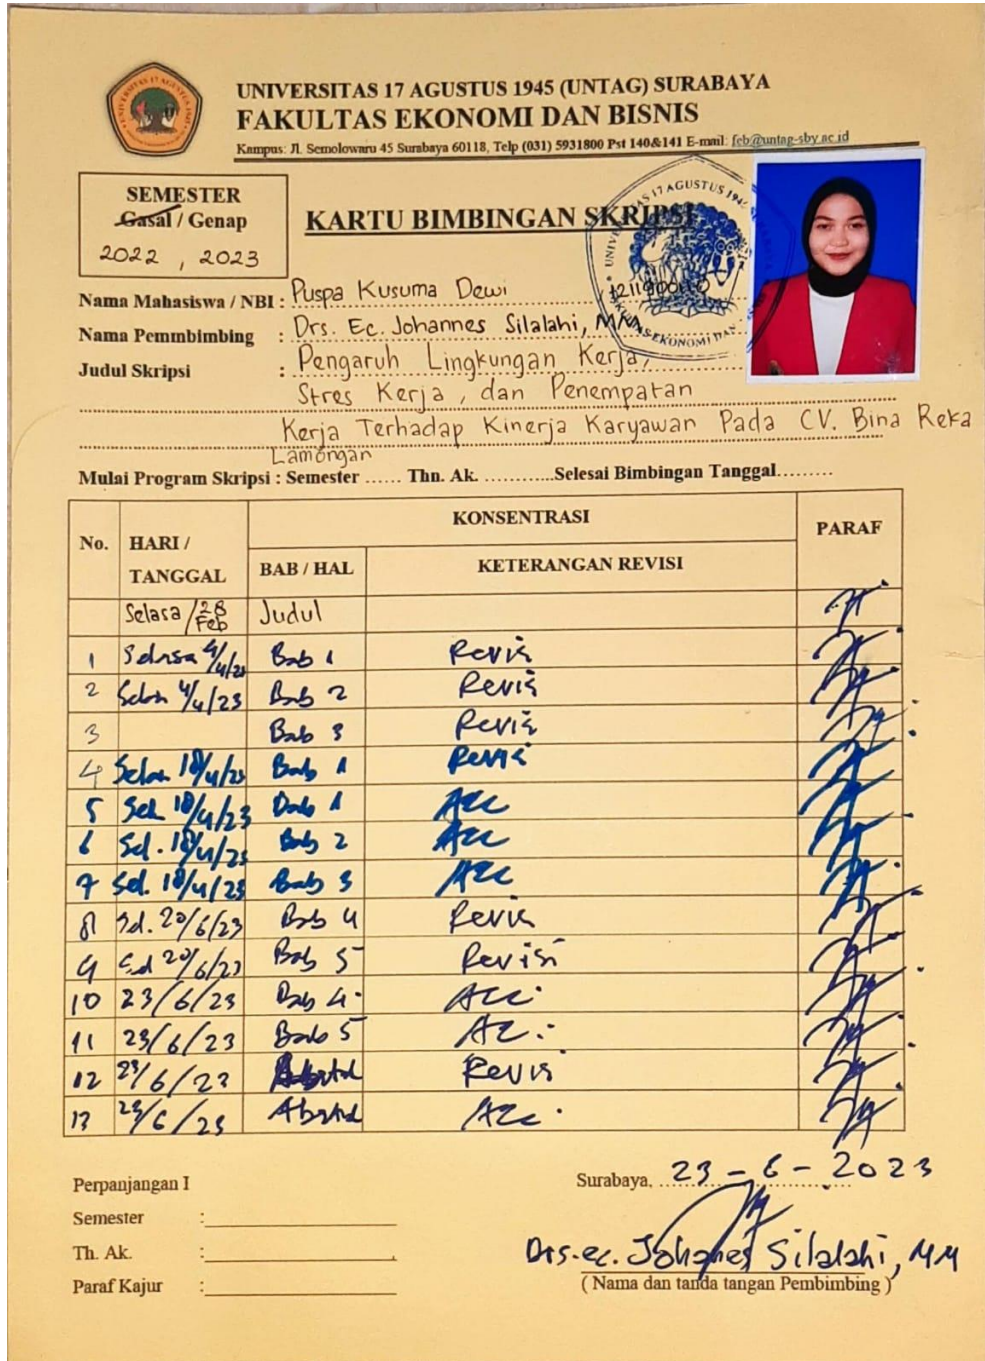 UNIVERSITAS 17 AGUSTUS 1945 (UNTAG) SURABAYA
FAKULTAS EKONOMI DAN BISNIS
Kampus: Jl. Semolowaru 45 Surabaya 60118, Telp (031) 5931800 Pst 140&141 E-mail: feb@untag-sby.ac.id
SEMESTER
Gasal / Genap
2022 , 2023
KARTU BIMBINGAN SKRIPSI
Nama Mahasiswa / NBI : Puspa Kusuma Dewi
Nama Pemmbimbing : Drs. Ec. Johannes Silalahi, MM
Judul Skripsi : Pengaruh Lingkungan Kerja,
Stres Kerja, dan Penempatan
Kerja Terhadap Kinerja Karyawan Pada CV. Bina Reka
Lamongan
Mulai Program Skripsi : Semester ...... Thn. Ak. ............Selesai Bimbingan Tanggal.........
No. HARI / TANGGAL KONSENTRASI PARAF
BAB / HAL KETERANGAN REVISI
Selasa / 28 Feb Judul
1 Selasa 4/4/23 Bab 1 Revisi
2 Selasa 4/4/23 Bab 2 Revisi
3 Bab 3 Revisi
4 Selasa 18/4/23 Bab 1 Revisi
5 Sel. 18/4/23 Bab 1 Acc
6 Sel. 18/4/23 Bab 2 Acc
7 Sel. 18/4/23 Bab 3 Acc
8 Sel. 20/6/23 Bab 4 Revisi
9 Sel 20/6/23 Bab 5 Revisi
10 23/6/23 Bab 4 Acc
11 23/6/23 Bab 5 Acc
12 23/6/23 Revisi
13 23/6/23 Acc
Perpanjangan I
Semester :
Th. Ak. :
Paraf Kajur :
Surabaya, 23 - 6 - 2023
Drs. ec. Johanes Silalahi, MM
( Nama dan tanda tangan Pembimbing )